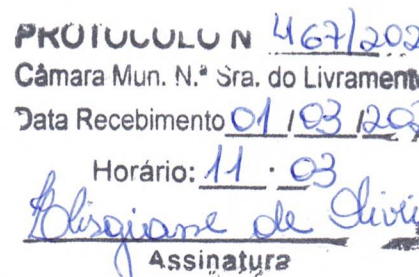 PROTOCOLO N 467/202
Câmara Mun. N.ª Sra. do Livramento
Data Recebimento 01/03/202
Horário: 11 · 03
de Oliveira
Assinatura